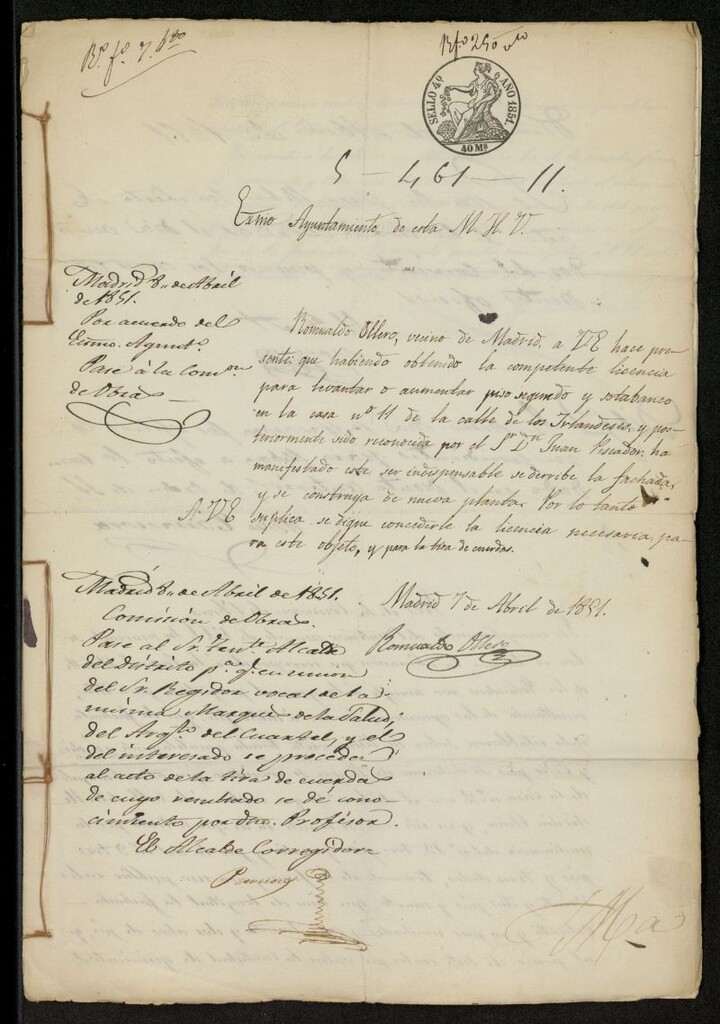 Rº fº 7. bto
SELLO 4º AÑO 1851.
40 Ms
5 - 461 - 11.
Exmo Ayuntamiento de esta M. H. V.
Madrid 8,, de Abril
de 1851.
Por acuerdo del
Exmo. Ayunto.
Pase á la Comon.
de Obras
Romualdo Ollero, vecino de Madrid, a VE hace pre-
sente: que habiendo obtenido la competente licencia
para levantar o aumentar piso segundo y sotabanco
en la casa nº 11 de la calle de los Irlandeses, y pos-
teriormente sido reconocida por el Sr Dn Juan Pescador, ha
manifestado este ser indispensable se derribe la fachada,
y se construya de nueva planta. Por lo tanto
A. VE suplica se digne concederle la licencia necesaria pa-
ra este objeto, y para la tira de cuerdas.
Madrid 7 de Abril de 1851.
Romualdo Ollero
Madrid 8,, de Abril de 1851.
Comisión de Obras
Pase al Sr. Tente. Alcalde
del distrito pa. q. en union
del Sr. Regidor vocal de la
misma Marques de la Salud,
del Arqto. del Cuartel, y el
del interesado se proceda
al acto de la tira de cuerdas
de cuyo resultado se dé cono-
cimiento por dho. Profesor.
El Alcalde Corregidor